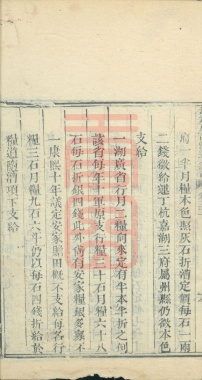 府一半月糧本色照灰石折清定價每石一兩
二錢徵給運丁杭嘉湖三府屬州縣仍徵本色
支給
一湖廣省行月二糧向來定有半本半折之例
該省每年十軍原支行糧三十石月糧六十八
石每石折銀四錢此外尚有安家糧銀
一康熙十年議定安家糧銀概不支給每名行
糧三石月糧九石六斗仍以每石四錢折給於
糧道南漕項下支給